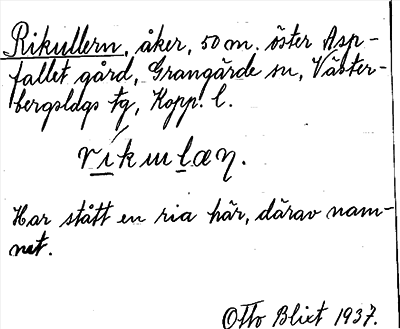 Rikullern, åker, 50 m. öster Asp-
fallet gård, Grangärde sn, Väster-
bergslags tg, Kopp. l.
ríkulæɳ.
Har stått en ria här, därav nam-
net.
Otto Blixt 1937.